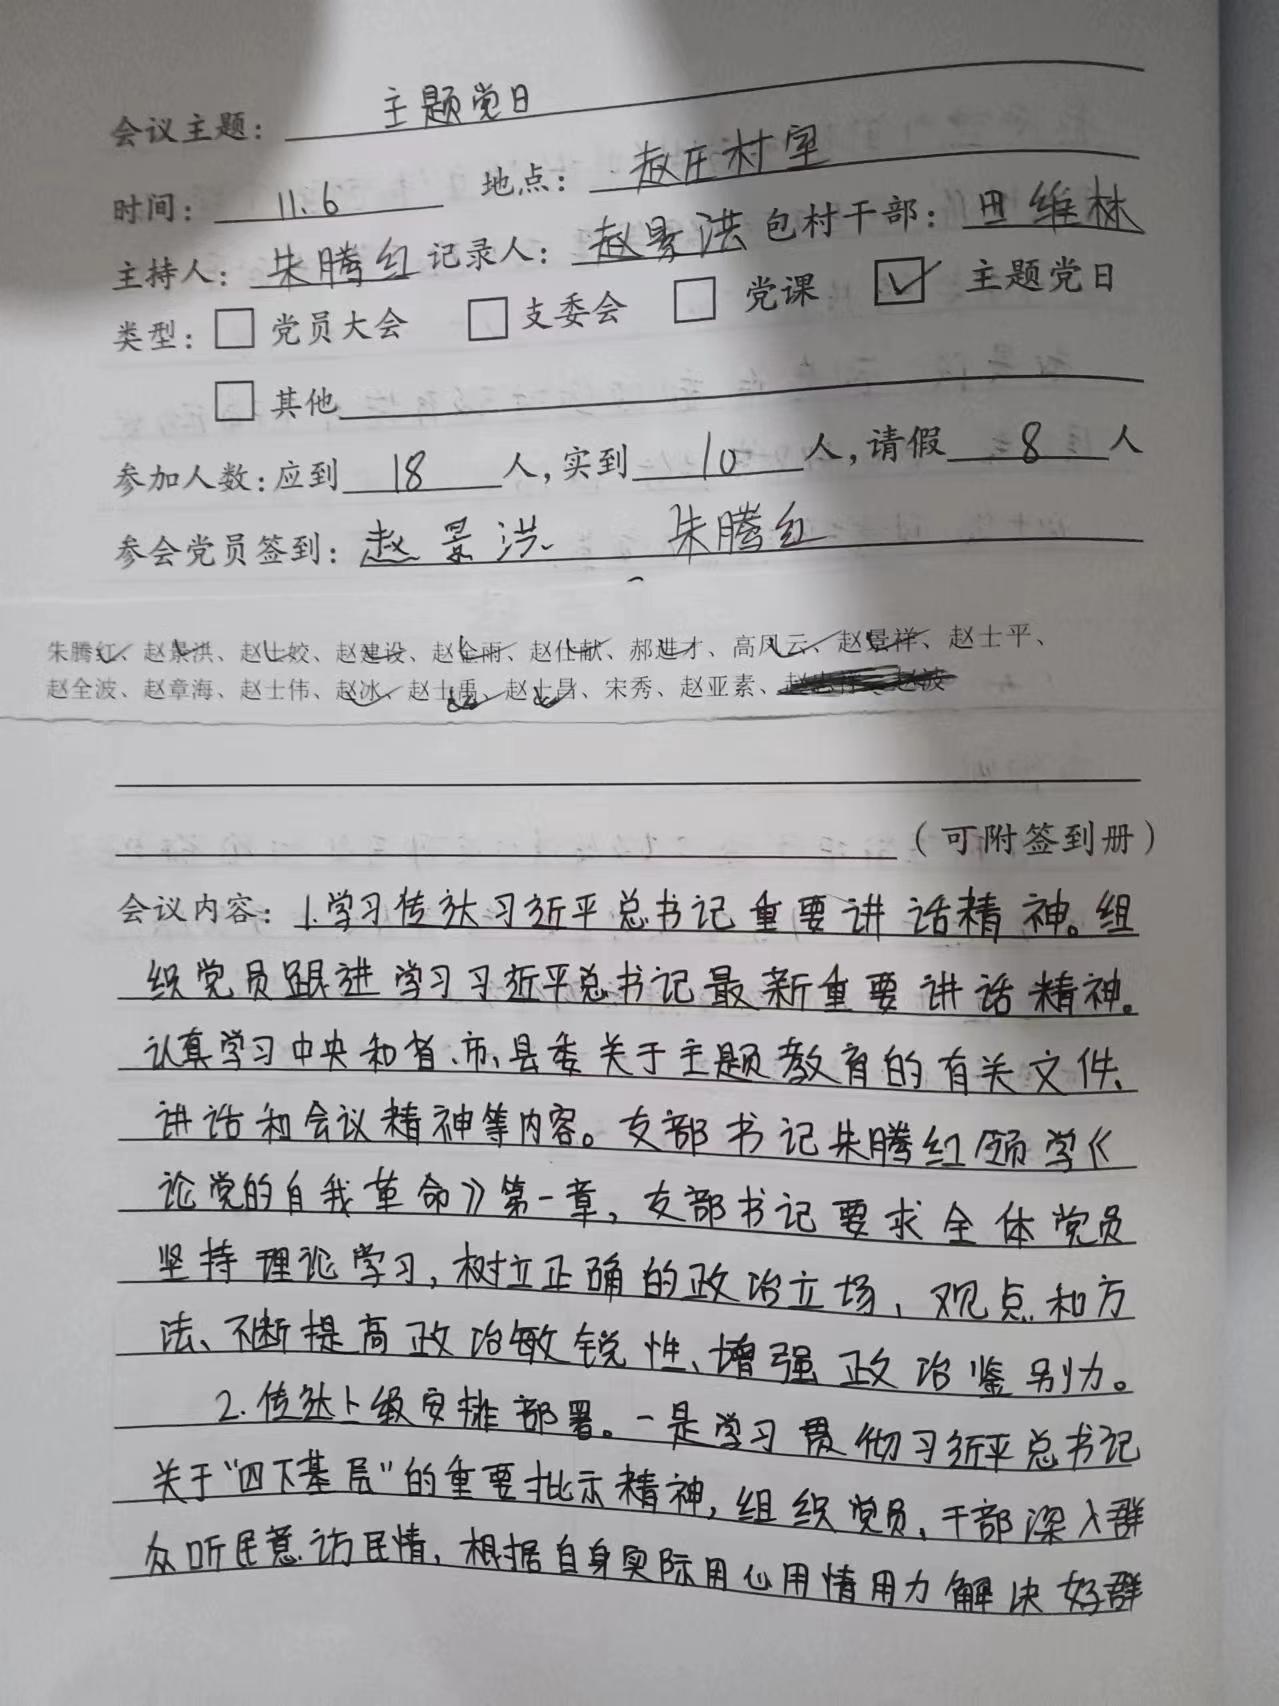 会议主题： 主题党日
时间： 11.6 地点： 赵庄村室
主持人： 朱腾红 记录人： 赵景洪 包村干部： 田维林
类型： 党员大会 支委会 党课 主题党日
其他
参加人数：应到 18 人，实到 10 人，请假 8 人
参会党员签到： 赵景洪 朱腾红
朱腾红、赵景洪、赵士姣、赵建设、赵金雨、赵仕献、郝进才、高风云、赵景祥、赵士平、
赵全波、赵章海、赵士伟、赵冰、赵士禹、赵士昌、宋秀、赵亚素、
（可附签到册）
会议内容： 1.学习传达习近平总书记重要讲话精神。组
织党员跟进学习习近平总书记最新重要讲话精神。
认真学习中央和省、市、县委关于主题教育的有关文件、
讲话和会议精神等内容。支部书记朱腾红领学《
论党的自我革命》第一章，支部书记要求全体党员
坚持理论学习，树立正确的政治立场、观点和方
法、不断提高政治敏锐性、增强政治鉴别力。
2.传达上级安排部署。一是学习贯彻习近平总书记
关于“四下基层”的重要批示精神，组织党员、干部深入群
众听民意访民情，根据自身实际用心用情用力解决好群